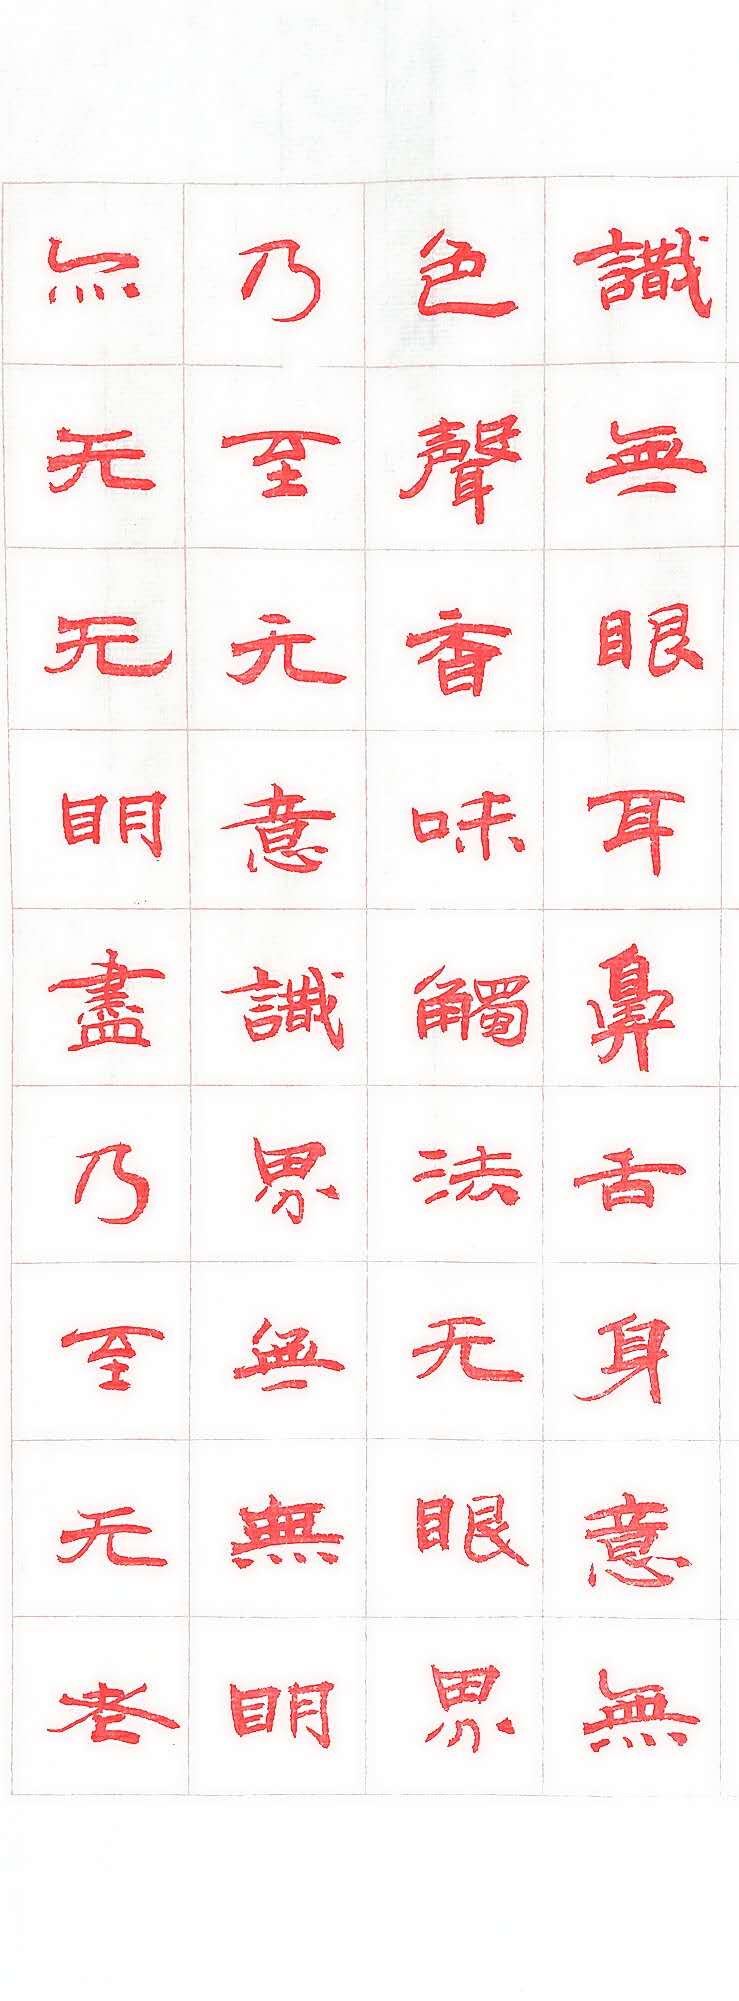 識無眼耳鼻舌身意無
色聲香味觸法无眼界
乃至无意識界無無眀
亦无无眀盡乃至无老